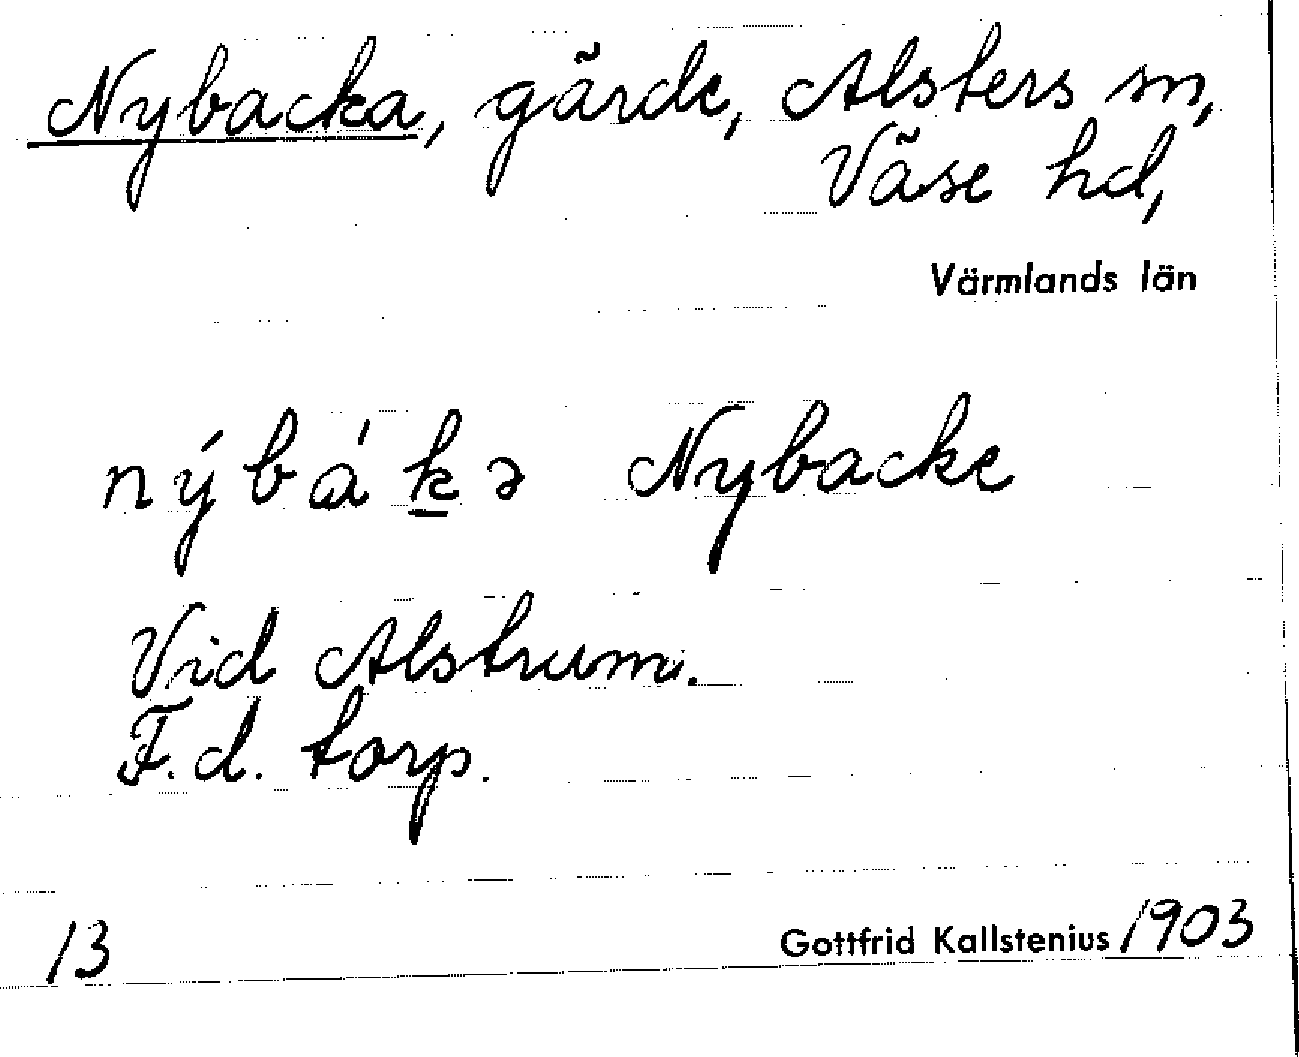 Nybacka, gärde, Alsters sn,
Väse hd,
Värmlands län
nýbák̲ə Nybacke
Vid Alstrum.
F.d. torp.
13 Gottfrid Kallstenius 1903